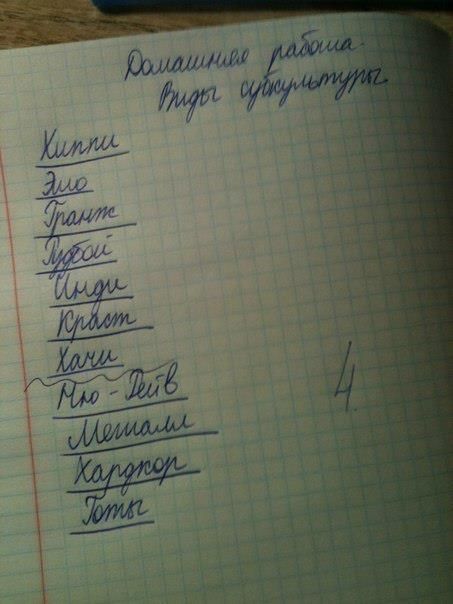 Домашняя работа.
Виды субкультуры.
Хиппи
Эмо
Гранж
Рудбой
Инди
Краст
Хачи
Ню-Рейв
Металл
Хардкор
Готы
4